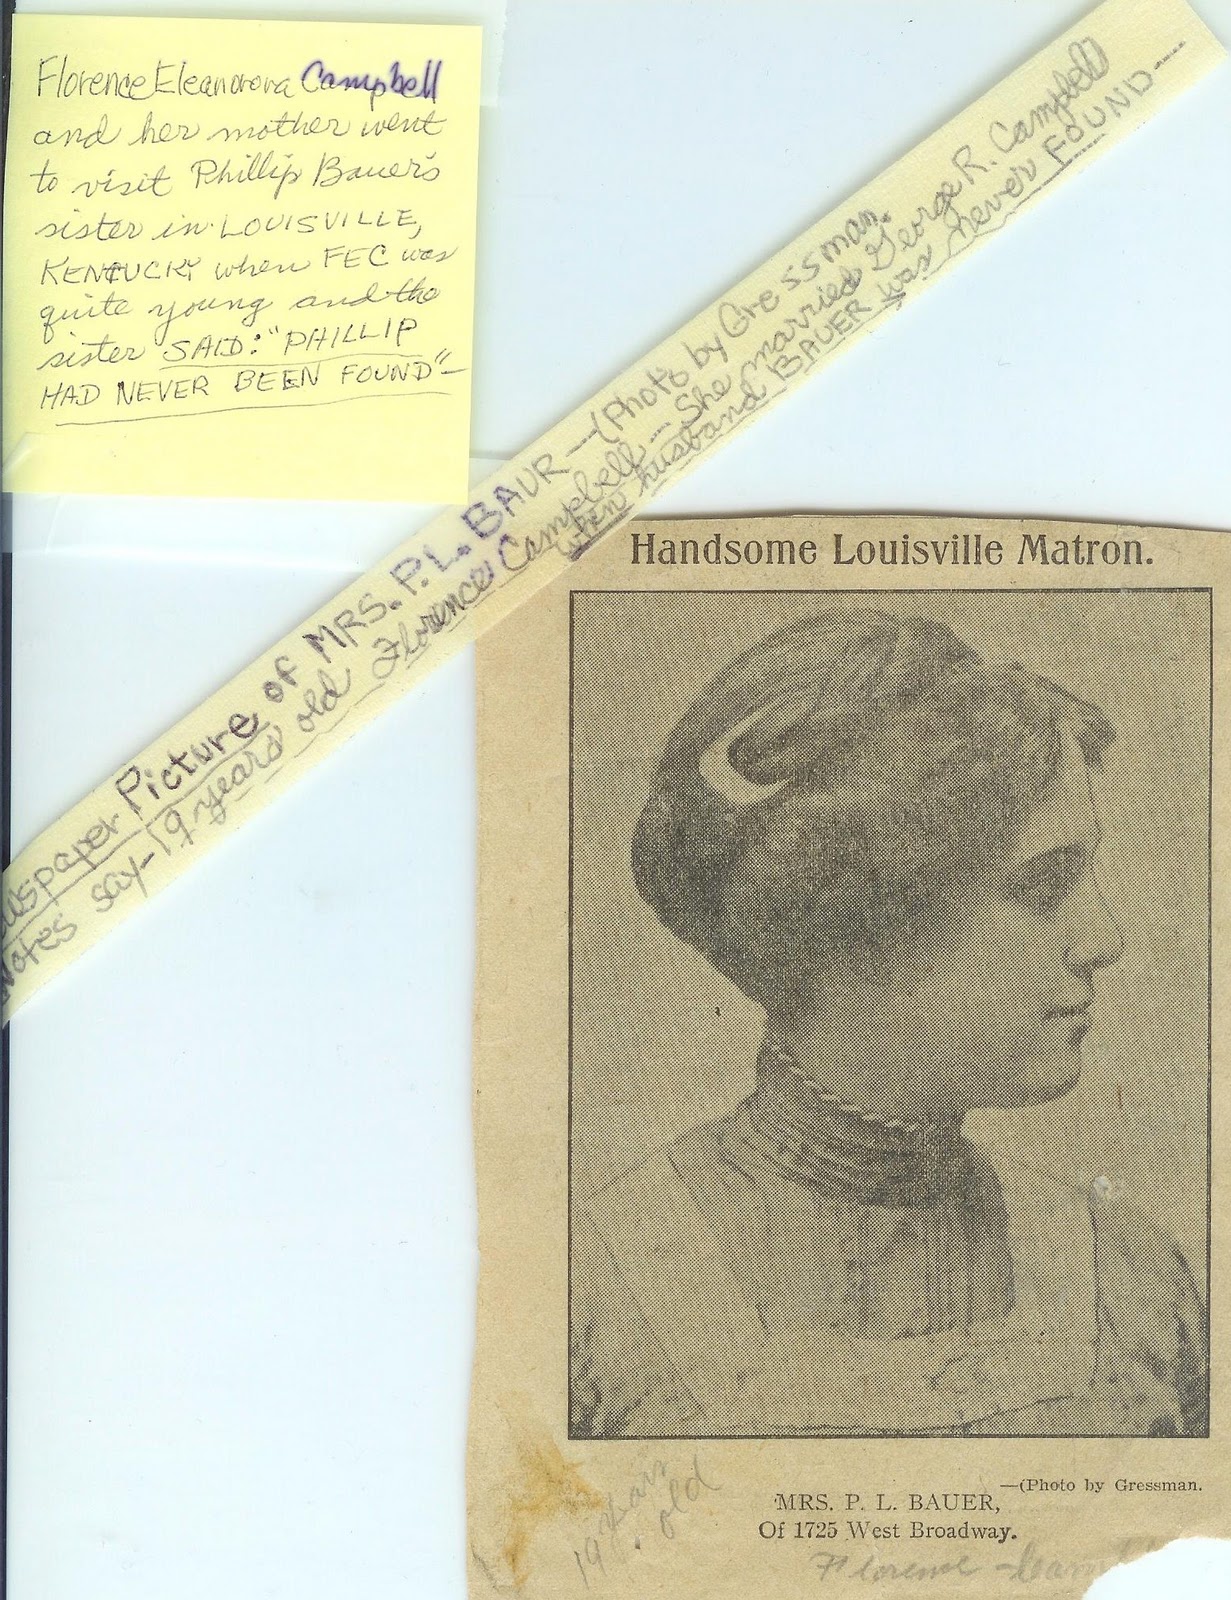 Florence Eleanorena Campbell
and her mother went
to visit Phillip Bauer's
sister in LOUISVILLE,
KENTUCKY when FEC was
quite young and the
sister SAID: "PHILLIP
HAD NEVER BEEN FOUND"—
uspaper Picture of MRS. P. L. BAUR —(Photo by Gressman.
Notes say—19 years old Florence Campbell — She married George R. Campbell
when husband BAUER was never FOUND—
Handsome Louisville Matron.
—(Photo by Gressman.
MRS. P. L. BAUER,
Of 1725 West Broadway.
19 years
old
Florence